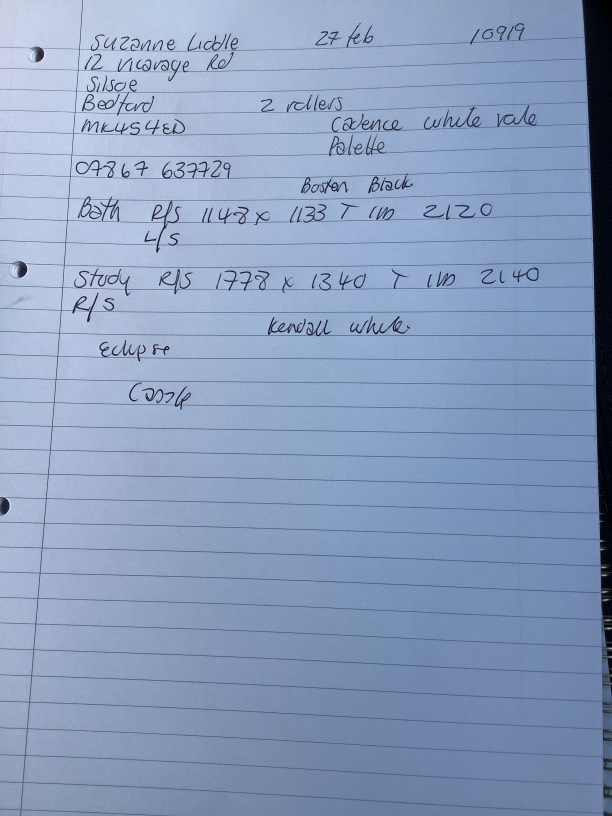 Suzanne Liddle 27 feb 10919
12 Vicarage Rd
Silsoe
Bedford 2 rollers
MK45 4ED Cadence white vale
Palette
07867 637729
Boston Black
Bath R/S 1148 x 1133 T 2120
L/S
Study R/S 1778 x 1340 T 2140
R/S
Kendall white
Eclipse